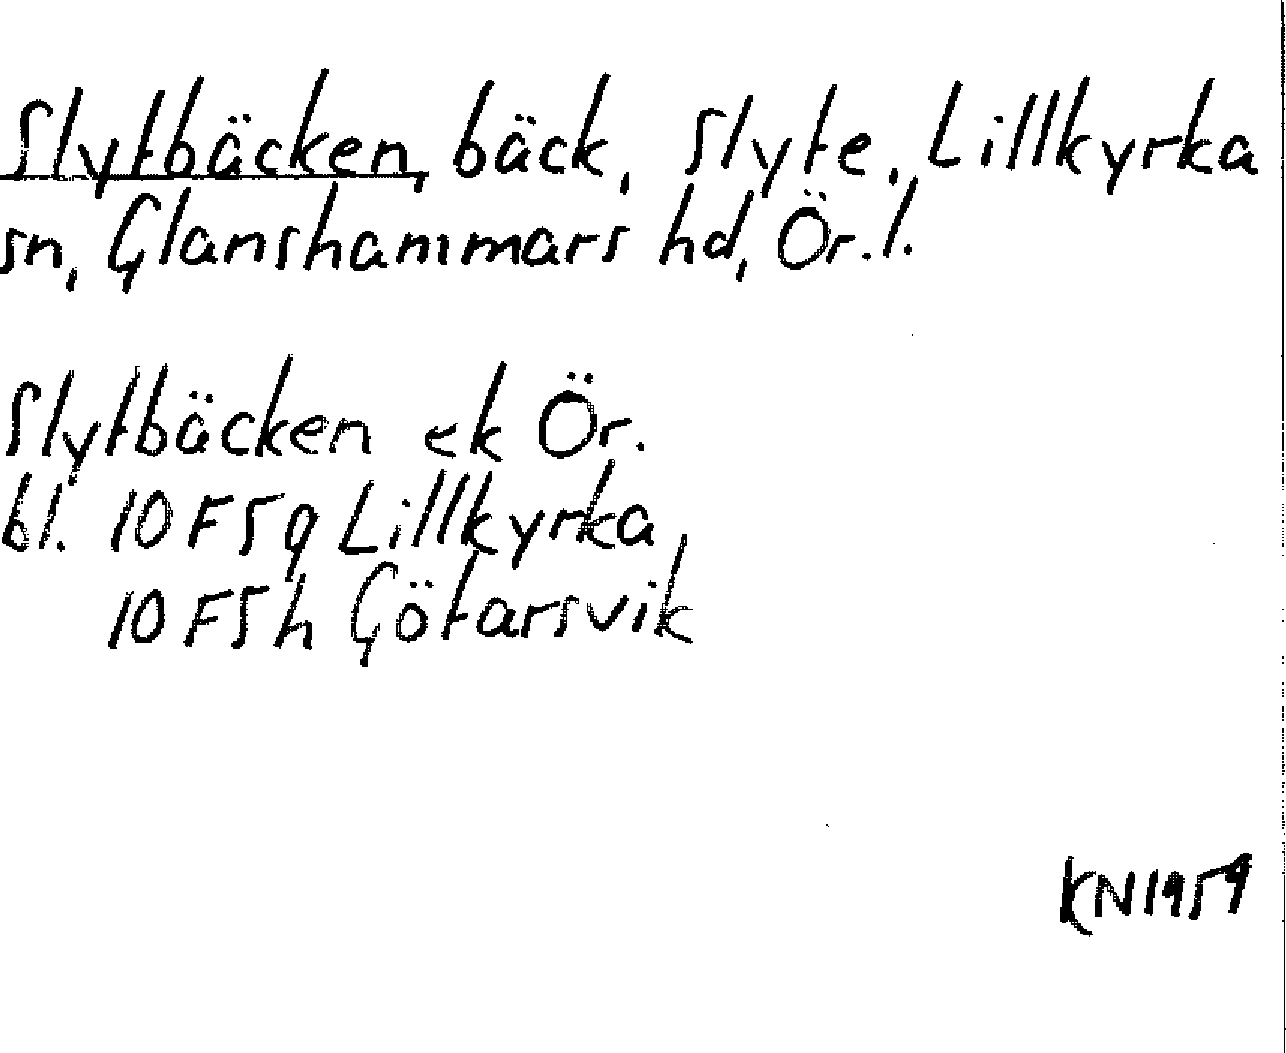 Slytbäcken, bäck, Slyte, Lillkyrka
sn, Glanshammars hd, Ör.l.
Slytbäcken ek Ör.
bl. 10F5g Lillkyrka,
10F5h Götarsvik
KN1959